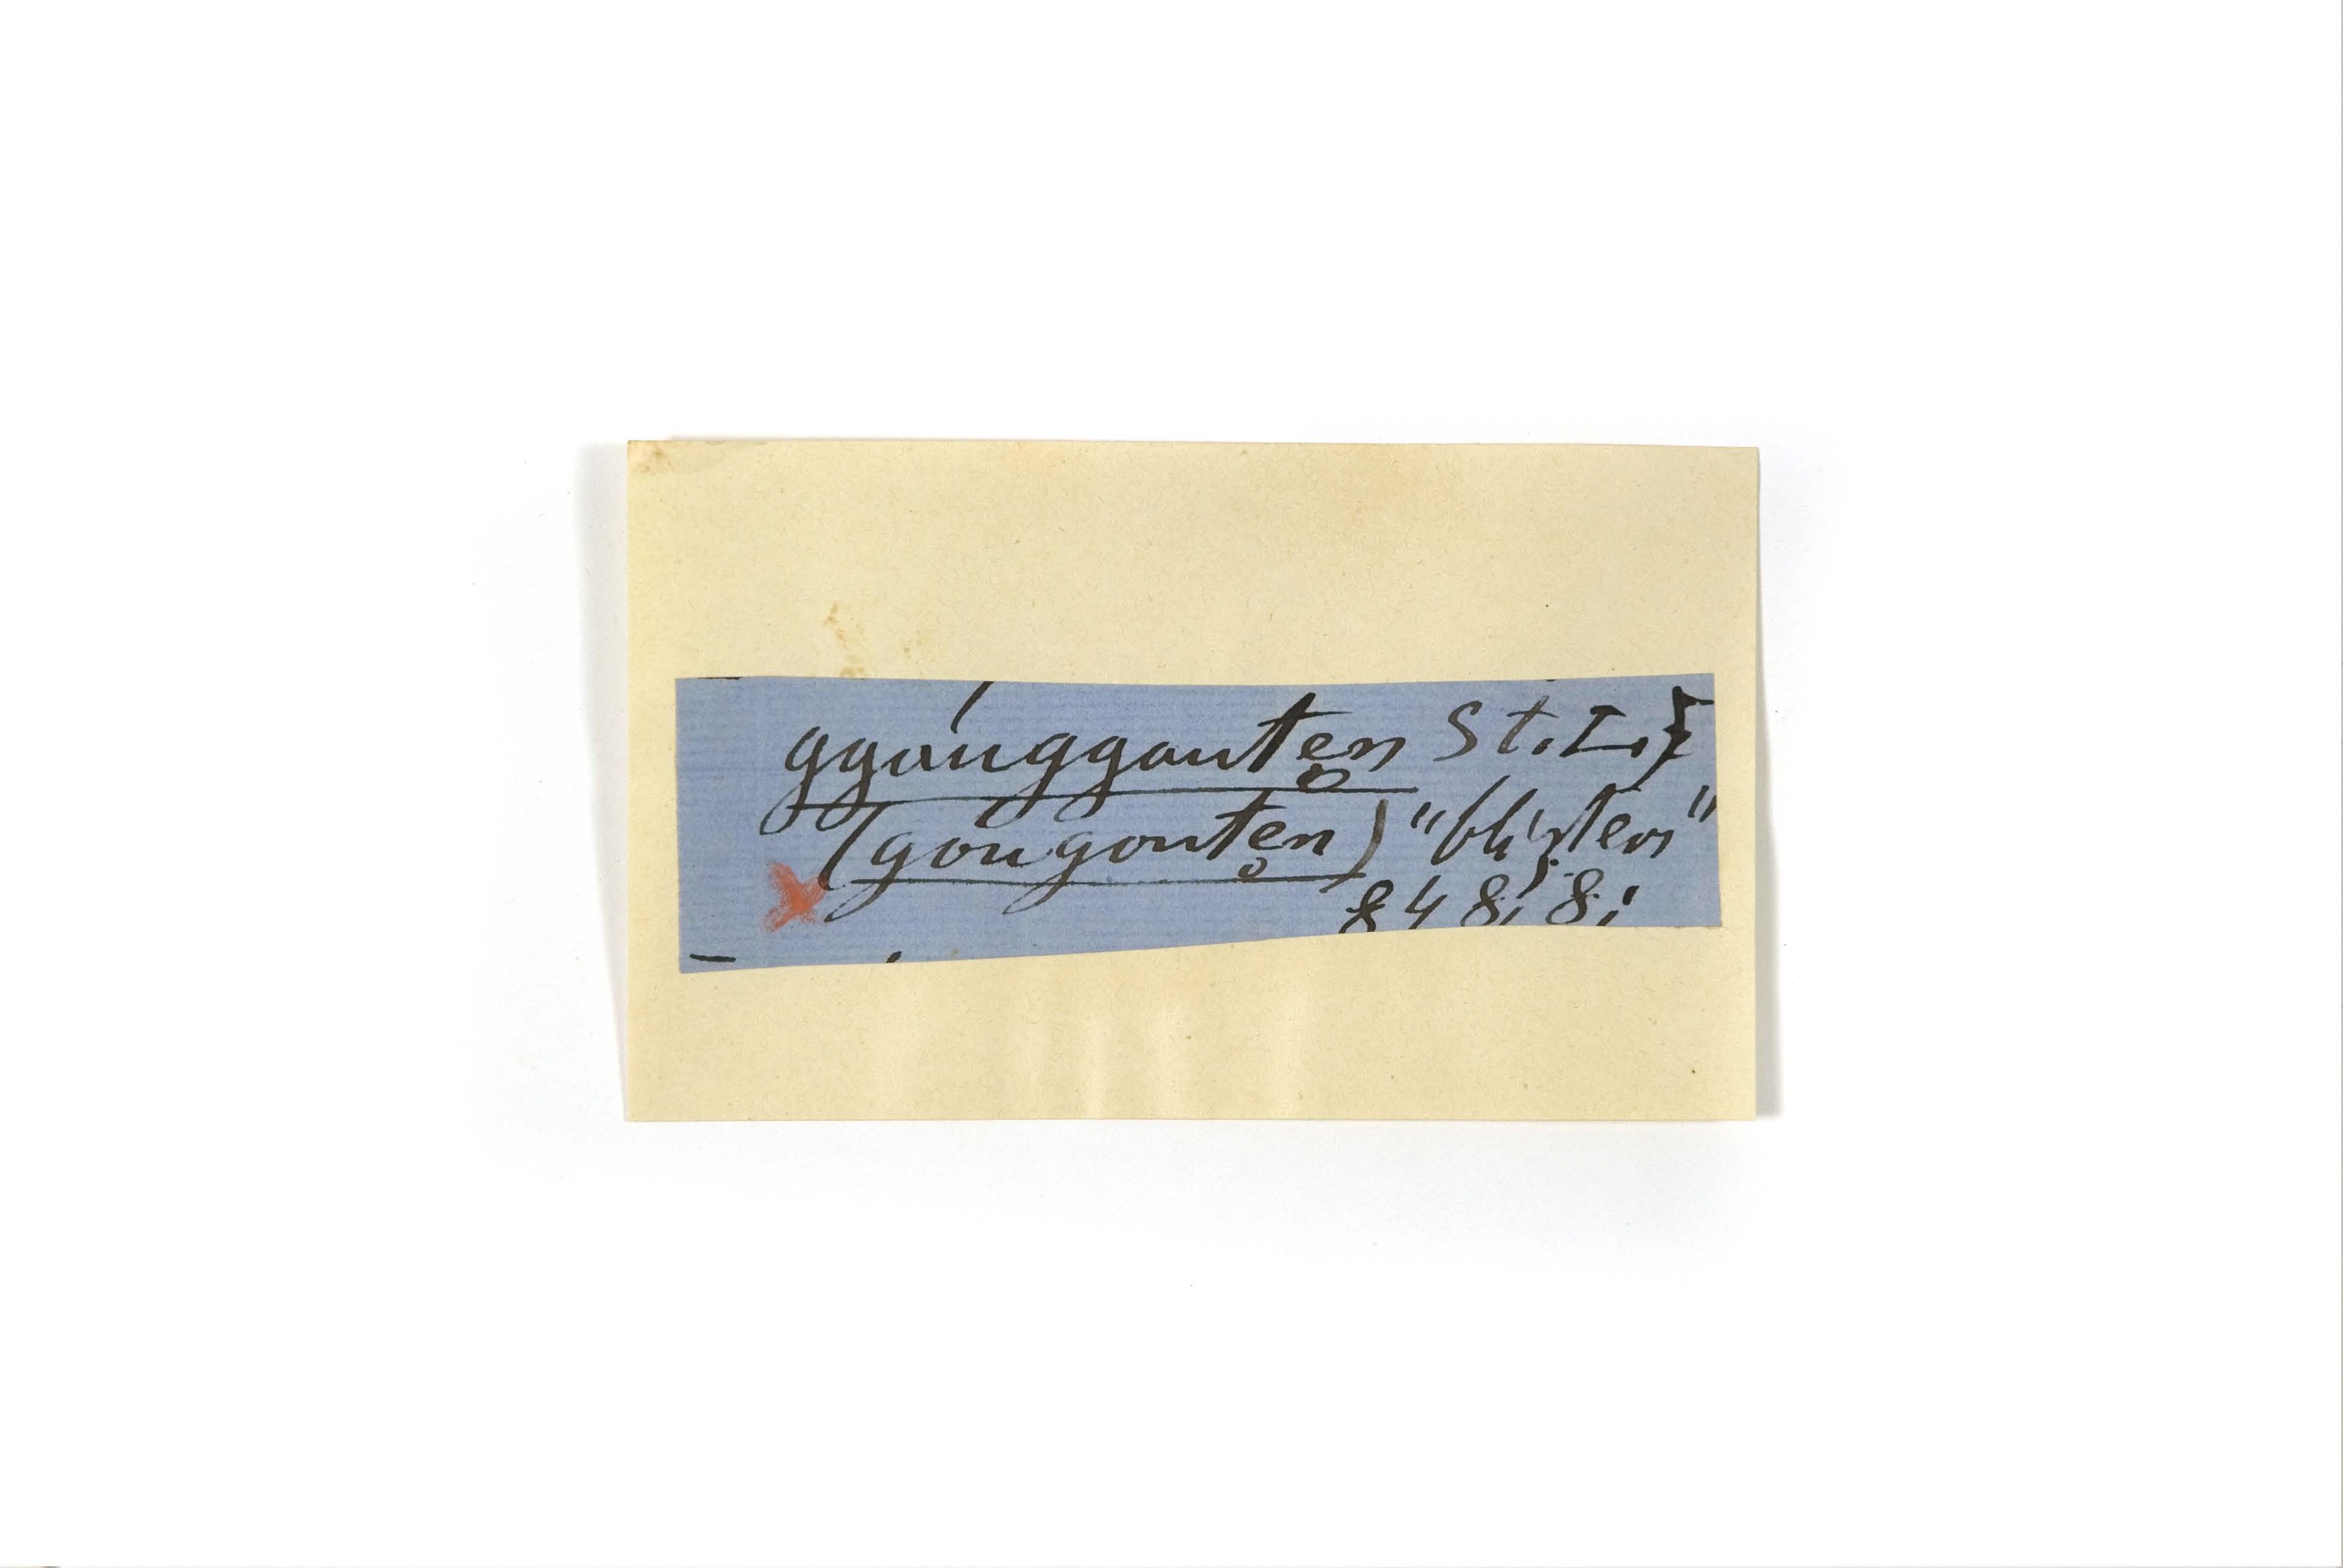 ggáuggauten̥ St. I. }
(góugouten̥) "blister"
848; 8;